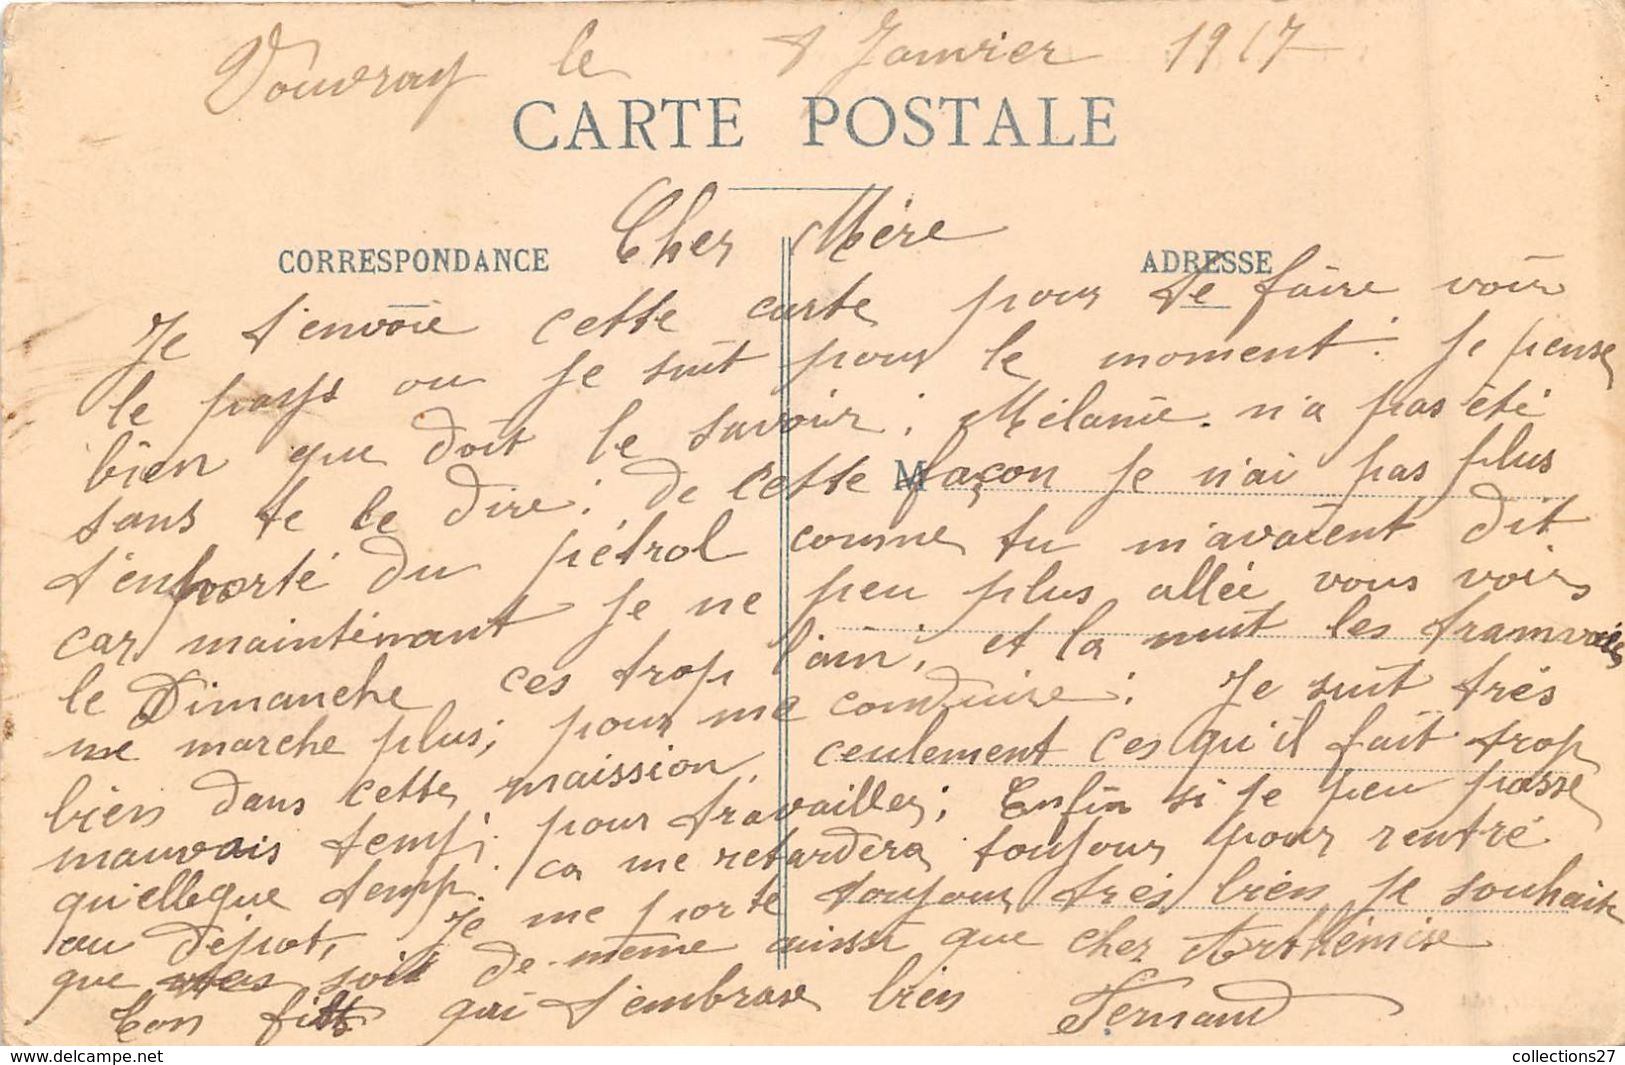 Vouvray le 8 Janvier 1917
CARTE POSTALE
Cher Mére
CORRESPONDANCE
ADRESSE
Je t'envoie cette carte pour te faire voir
le pays ou je suit pour le moment. Je pense
bien que doit le savoir; Mélanie n'a pas été
sans te le dire; de cette façon je n'ai pas plus
M
t'emporté du pétrol comme tu m'avaient dit
car maintenant je ne peu plus allée vous voir
le Dimanche ces trop loin; et la nuit les tramvaies
ne marche plus; pour me conduire; Je suit trés
bien dans cette maission, ceulement ces qu'il fait trop
mauvais temp; pour travailler; Enfin si je peu passe
qu'ellque temp ca me retardera toujour pour rentré
au dépot, Je me porte toujour trés bien je souhaite
que soit de même aussi que cher Arthémise
Ton fils qui t'embrase bien Fernand
collections27